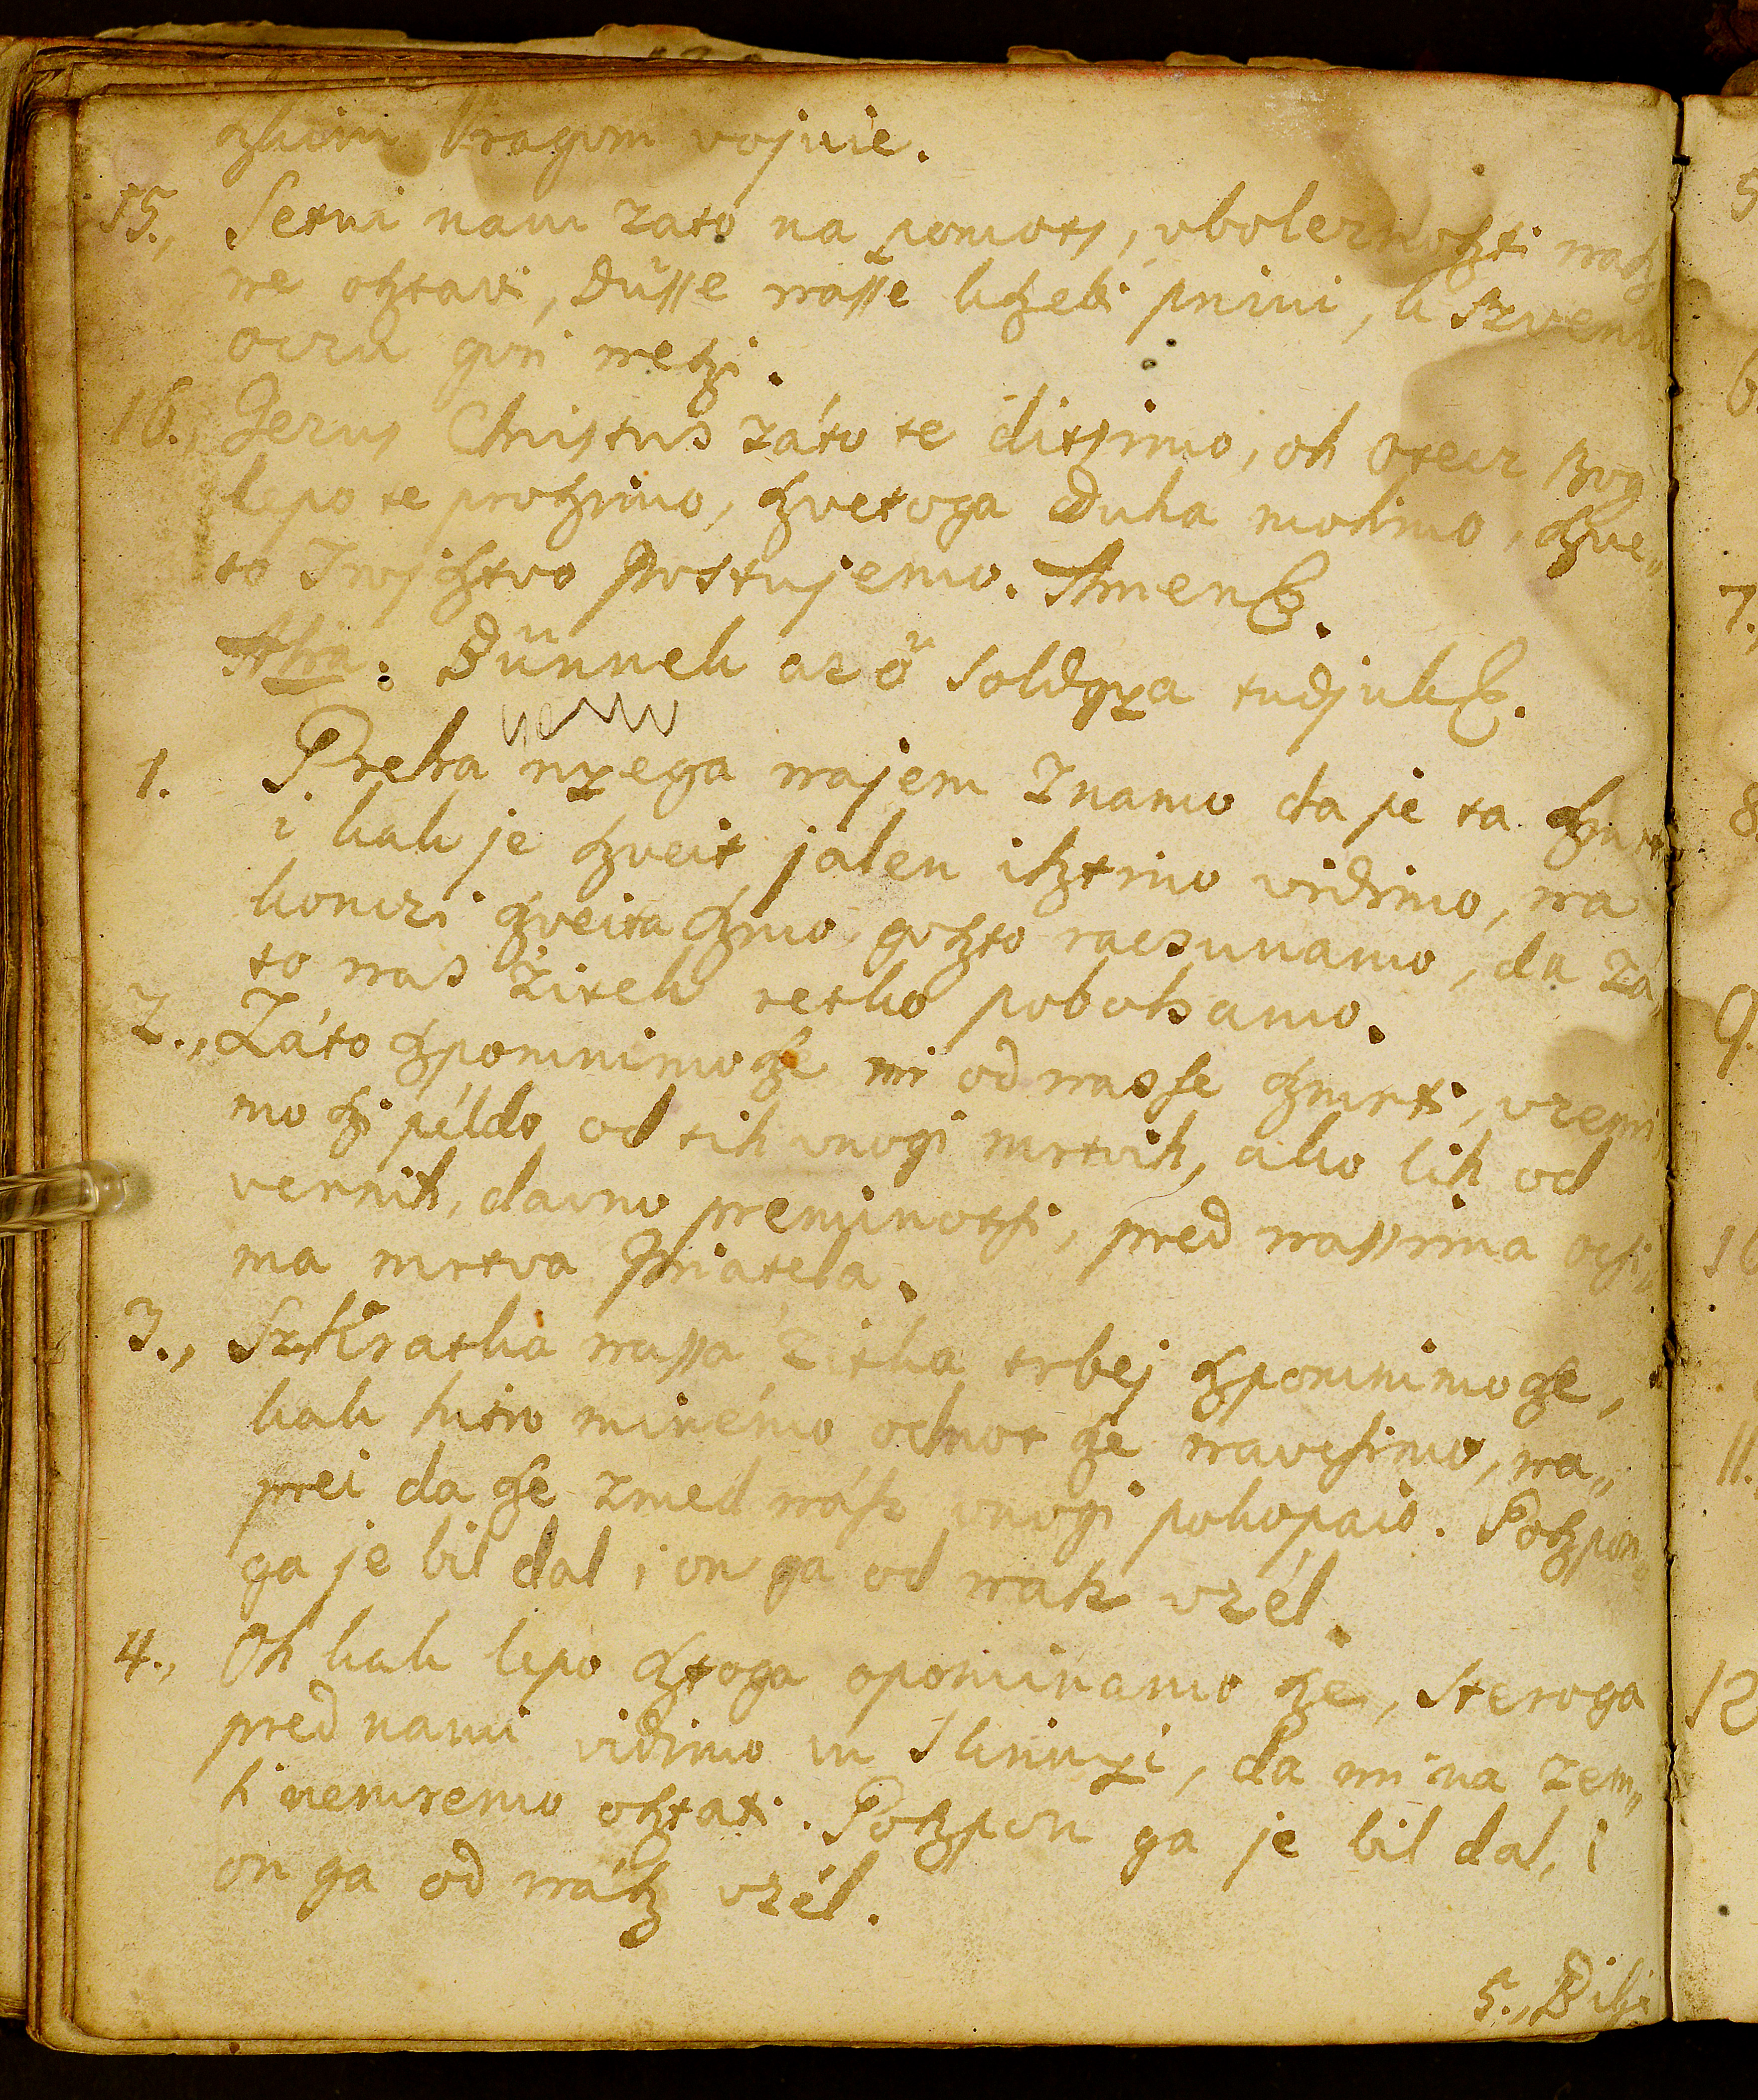 vragom vojuie.
15., Setui nam zato na pomots, vboleznoszti nasz
ne osztavi, Düsse nasse kszebi primi, k Szvemu
oczu gori neszi.
16., Jezus Christus záto te ditsimo, oh Otecz Bog
lepo te proszimo, szvetoga Duha molimo, szve„
to Trojsztvo Postujemo. Amen.
Alia: Bünnek az ö soldgya tudjuk.
1. Preka nyega najem Znamo da je ta szmrt
i kak je szveit jalen isztino vidimo, na
konczi szveita szmo goszto racsunamo, da za„
to nas Zitek retko pobolsamo.
2., Záto szpomnimo sze mi od nasse szmrti, vzemi
mo szi példo od tih vnogi mrtvih, ako lih od
vernih, davno preminoszti, pred nassima ocsi„
ma mrtva Priatela.
3., Sz Kratka nassa Zitka trbej szpomnimo sze,
kak hitro minémo, odnot sze navcsimo, na„
prei da sze zmed nász vnogi pokopaio. Goszpon„
ga je bil dal, i on ga od nasz vzél.
4., Oh kak lepo sztoga opominamo sze, steroga
pred nami vidimo vu Skrinyi, da mi na zem„
li nemremo osztati. Goszpon ga je bil dal, i
on ga od nász vzél.
5., Bil